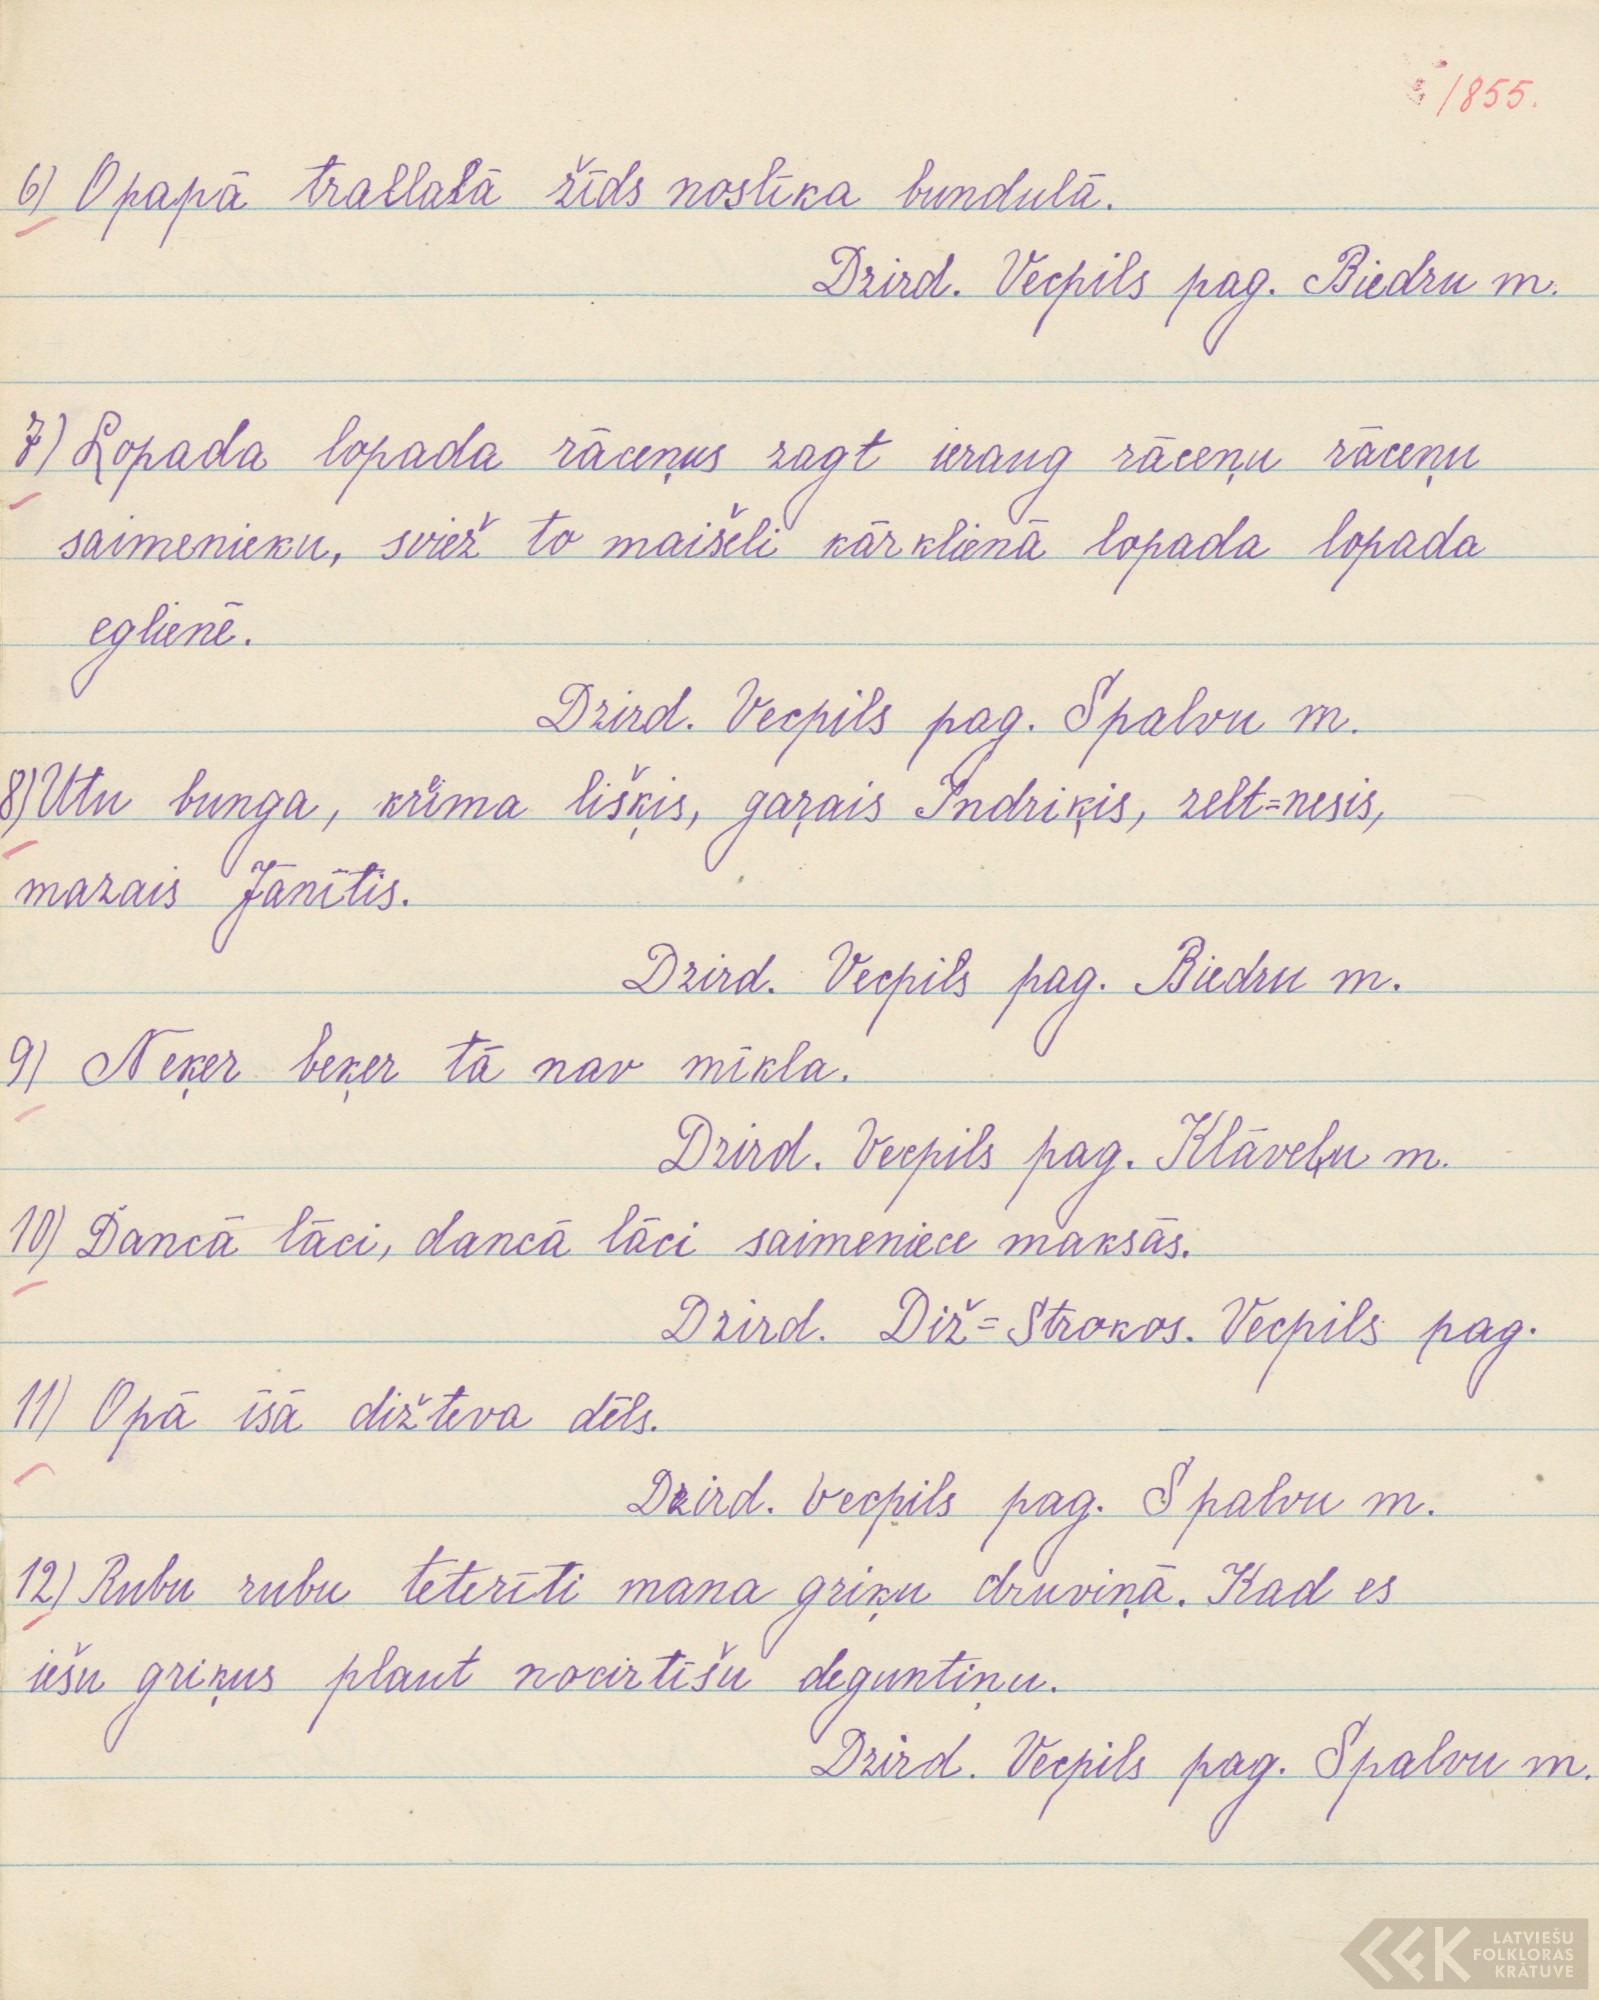 1855.
6) Opapā trallalā žīds noslīka bundulā.
Dzird. Vecpils pag. Biedru m.
7) Lopada lopada rāceņus zagt ieraug rāceņu rāceņu
saimenieku, sviež to maišeli kārklienā lopada lopada
eglienē.
Dzird. Vecpils pag. Spalvu m.
8) Utu bunga, krīma lišķis, gaŗais Indriķis, zelt=nesis,
mazais Jānītis.
Dzird. Vecpils pag. Biedru m.
9) Neķer beķer tā nav mīkla.
Dzird. Vecpils pag. Klāveļu m.
10) Dancā lāci, dancā lāci saimeniece maksās.
Dzird. Diž=Strokos. Vecpils pag.
11) Opā īsā dižteva dēls.
Dzird. Vecpils pag. Spalvu m.
12) Rubu rubu teterīti mana griķu druviņā. Kad es
iešu griķus plaut nocirtīšu deguntiņu.
Dzird. Vecpils pag. Spalvu m.
LATVIEŠU
FOLKLORAS
KRĀTUVE